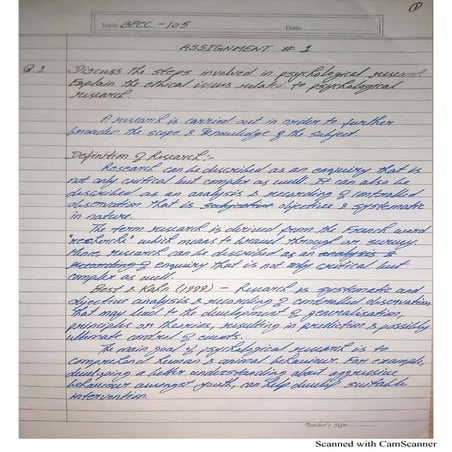 ①
Topic BPCC - 105 Date
ASSIGNMENT # 1
Q.1. Discuss the steps involved in psychological research.
Explain the ethical issues related to psychological
research.
A research is carried out in order to further
broaden the scope & knowledge of the subject.
Definition of Research:-
Research can be described as an enquiry that is
not only critical but complex as well. It can also be
described as an analysis & recording of controlled
observation that is objective & systematic
in nature.
The term research is derived from the French word
"recherche" which means to travel through or survey.
research can be described as an
of enquiry that is not only critical but
complex as well.
Best & Kahn (1999) - Research is systematic and
objective analysis & recording of controlled observation
that may lead to the development of generalisation,
principles or theories, resulting in prediction & possibly
ultimate control of events.
The main goal of psychological research is to
comprehend human & animal behaviour. For example,
developing a better understanding about aggressive
behaviour amongst youth, can help develop suitable
intervention.
Teacher's Sign
Scanned with CamScanner